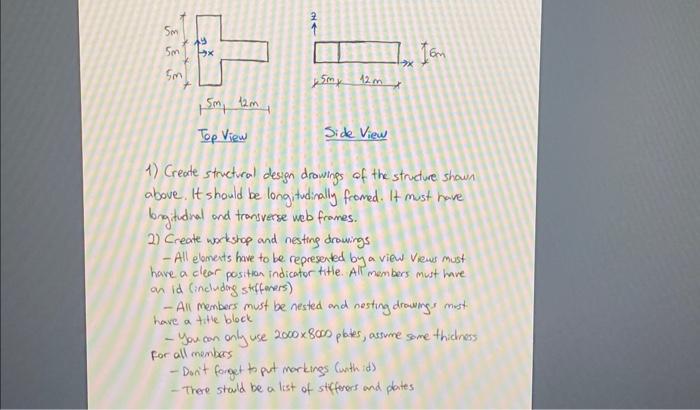 5m
5m
5m
y
x
5m 12m
Top View
z
x
6m
5m 12m
Side View
1) Create structural design drawings of the structure shown
above. It should be longitudinally framed. It must have
longitudinal and transverse web frames.
2) Create workshop and nesting drawings
- All elements have to be represented by a view Views must
have a clear position indicator title. All members must have
an id (including stiffeners)
- All members must be nested and nesting drawings must
have a title block
- You can only use 2000x8000 plates, assume same thickness
for all members
- Don't forget to put markings (with id)
- There should be a list of stiffeners and plates